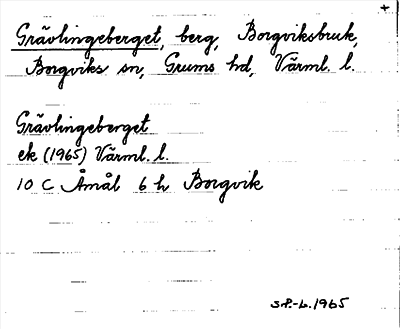 +
Grävlingeberget, berg, Borgviksbruk,
Borgviks sn, Grums hd, Värml. l.
Grävlingeberget
ek (1965) Värml. l.
10 C Åmål 6 h Borgvik
SP.-b. 1965